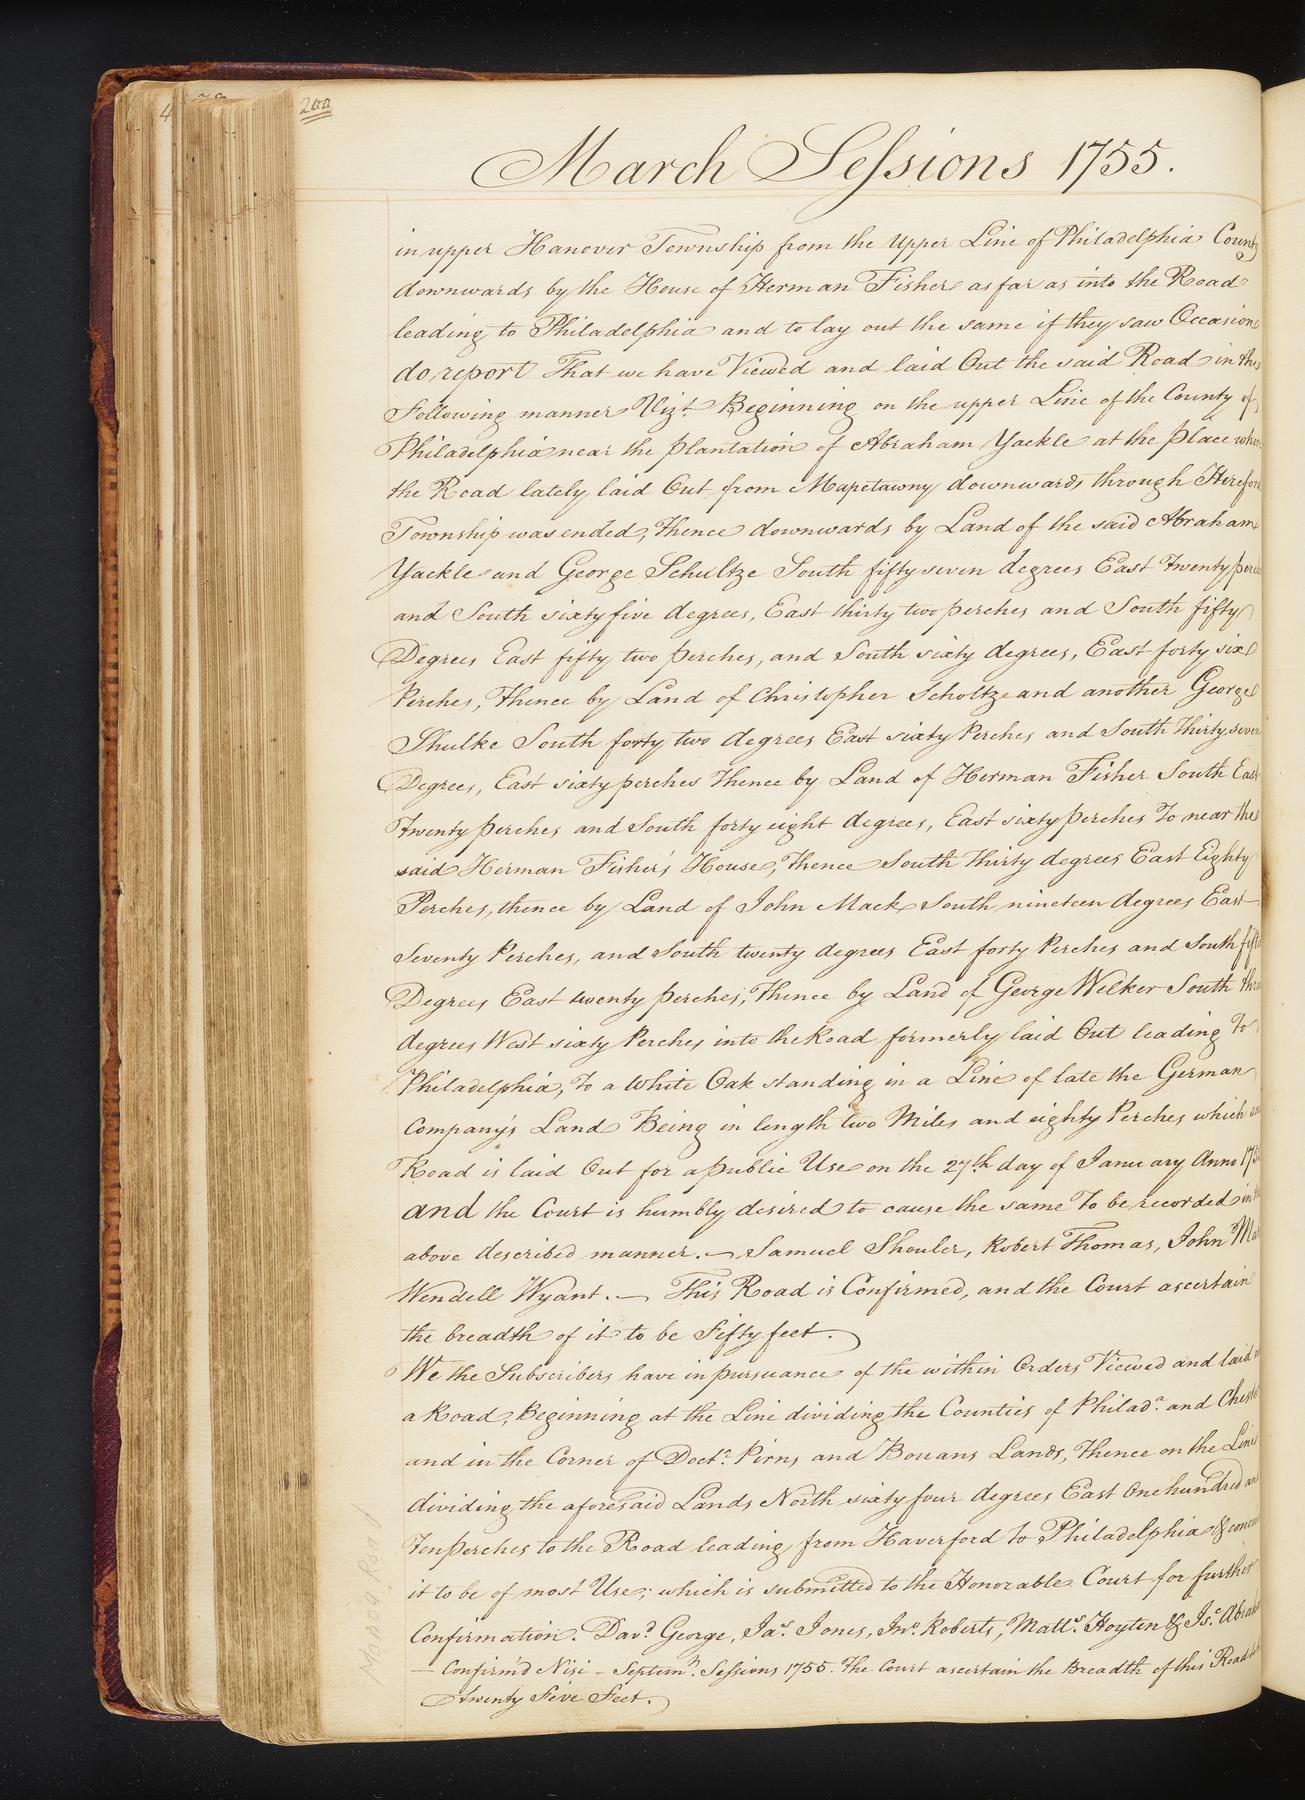 200
March Sessions 1755.
in upper Hanover Township from the Upper Line of Philadelphia County
downwards by the House of Herman Fisher as far as into the Road
leading to Philadelphia and to lay out the same if they saw Occasion
do, report That we have Viewed and laid Out the said Road in the
Following manner Vizt. Beginning on the upper Line of the County of
Philadelphia near the plantation of Abraham Yackle at the place where
the Road lately laid Out from Mapetawny downwards through Hereford
Township was ended, thence downwards by Land of the said Abraham
Yackle and George Schultze South fifty seven degrees East Twenty
and South sixty five degrees, East thirty two perches and South fifty
Degrees East fifty two perches, and South sixty degrees, East forty six
Perches, thence by Land of Christopher Scholtze and another George
Shulke South forty two degrees East sixty Perches and South thirty seven
Degrees, East sixty perches Thence by Land of Herman Fisher South East
twenty perches and South forty eight degrees, East sixty perches To near the
said Herman Fisher's House, thence South thirty degrees East Eighty
Perches, thence by Land of John Mack South nineteen degrees East
Seventy Perches, and South twenty degrees East forty Perches and South
Degrees East twenty perches, thence by Land of George Welker South three
degrees West sixty Perches into the Road formerly laid Out leading To
Philadelphia, To a White Oak standing in a Line of late the German
Company's Land Being in length two Miles and eighty Perches which
Road is laid Out for a public Use on the 27th day of January Anno
and the Court is humbly desired to cause the same To be recorded in
above described manner. — Samuel Shouler, Robert Thomas, John
Wendell Wyant. — This Road is Confirmed, and the Court ascertain
the breadth of it to be Fifty feet.
We the Subscribers have in pursuance of the within Orders Viewed and laid
a Road, Beginning at the Line dividing the Counties of Philada. and
and in the Corner of Doctr. Pirns and Bouans Lands, Thence on the Line
dividing the aforesaid Lands North sixty four degrees East One hundred and
Ten perches to the Road leading from Haverford to Philadelphia &
it to be of most Use; which is submitted to the Honorable Court for further
Confirmation. Davd. George, Jas. Jones, Jno. Roberts, Matts. Hoyten & Isc.
— Confirm'd Nisi — Septemr. Sessions 1755. The Court ascertain the Breadth of this Road
twenty Five Feet.